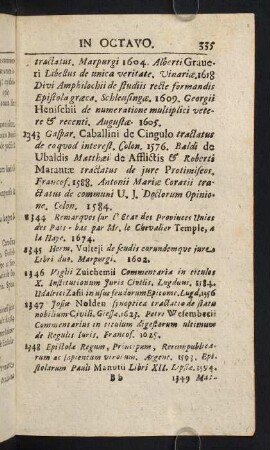 IN OCTAVO. 335
tractatus. Marpurgi 1604. Alberti Graue-
ri Libellus de unica veritate. Vinariæ, 1618
Divi Amphilochii de studiis recte formandis
Epistola græca. Schleusingæ. 1609. Georgii
Henischii de numeratione multiplici vete-
re & recenti. Augustæ. 1605.
2343 Gaspar. Caballini de Cingulo tractatus
de eo quod interest. Colon. 1576. Baldi de
Ubaldis Matthæi de Afflictis & Roberti
Marantæ tractatus de jure Protimiseos.
Francof. 1588. Antonii Mariæ Coratii tra-
ctatus de communi U. J. Doctorum Opinio-
ne. Colon. 1584.
1344 Remarques sur l'Etat des Provinces Unies
des Pais-bas par Mr. le Chevalier Temple, a
la Haye. 1674.
1345 Herm. Vulteji de feudis eorundemque jure
Libri duo. Marpurgi. 1602.
1346 Viglii Zuichemii Commentaria in titulos
X. Institutionum Juris Civilis. Lugduni. 1584.
Udalrici Zasii in usus feudorum Epitome. Lugd. 1556
1347 Josiæ Nolden synoptica tractatio de statu
nobilium Civili. Giessæ. 1623. Petri Wesembecii
Commentarius in titulum digestorum ultimum
de Regulis Juris. Francof. 1625.
1348 Epistolæ Regum, Principum, Rerumpublica-
rum ac sapientum virorum. Argent. 1593. Epi-
stolarum Pauli Manutii Libri XII. Lipsiæ. 1594.
B b 1349 Mar-